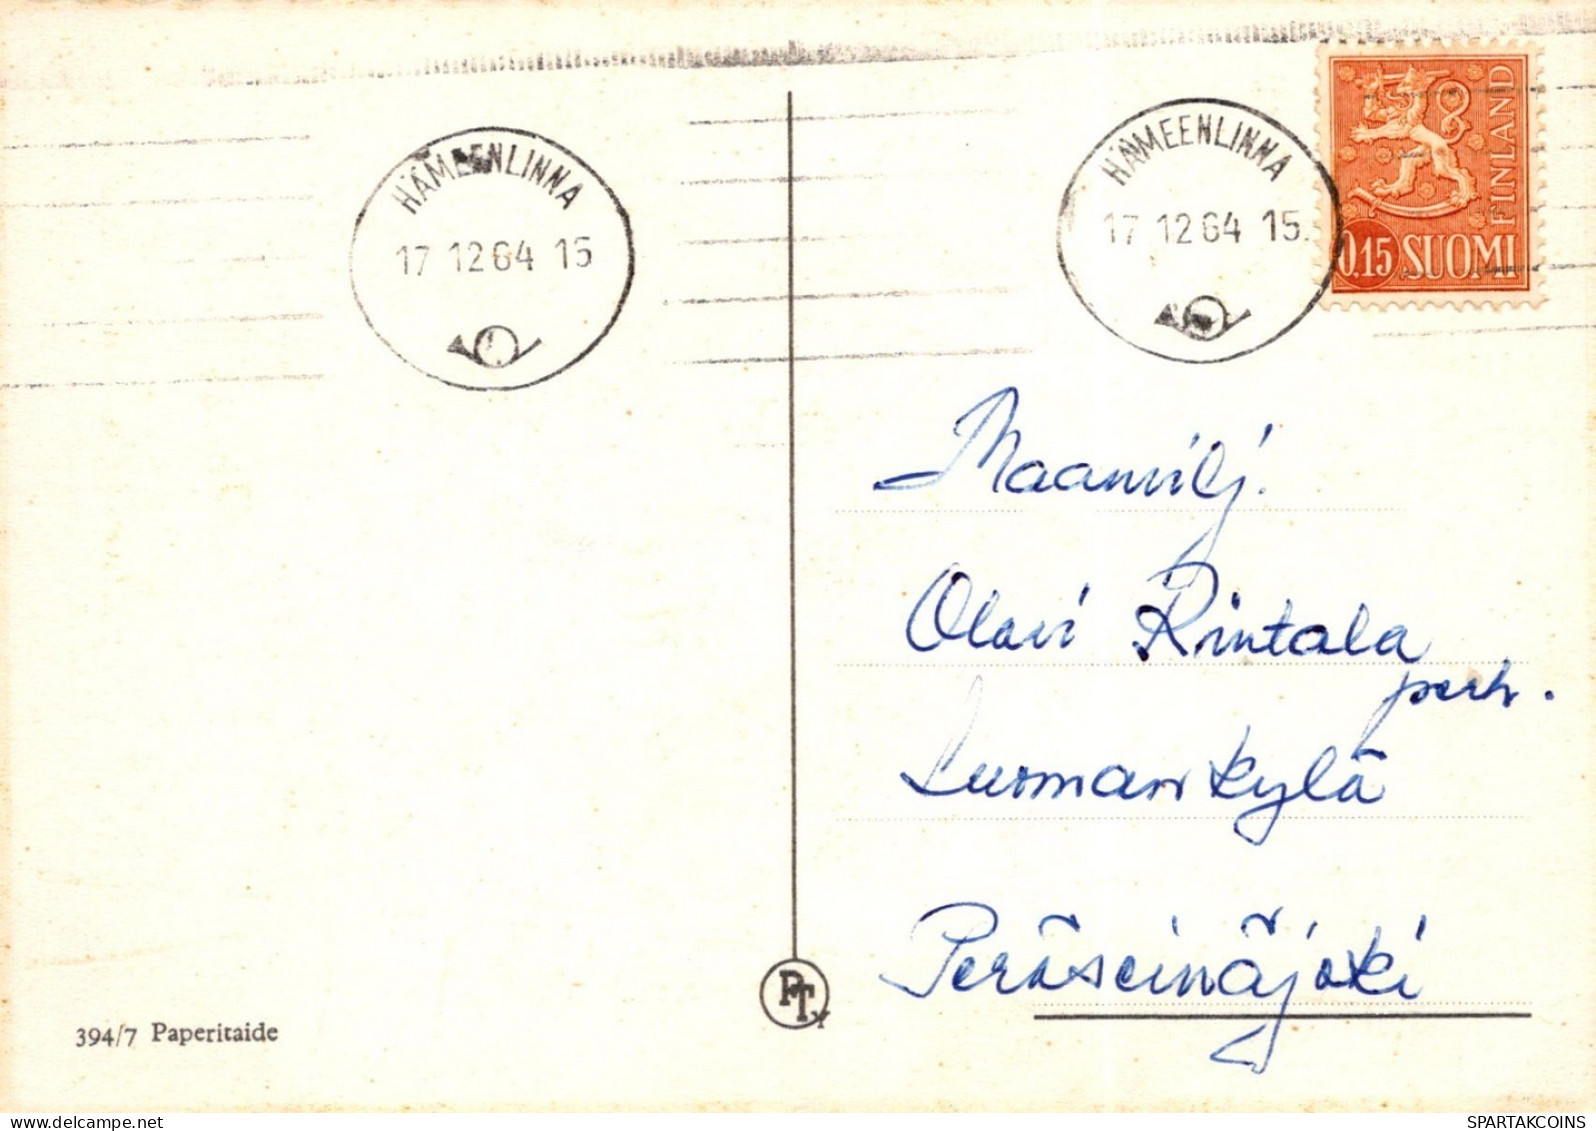 HÄMEENLINNA
17 12 64 15
HÄMEENLINNA
17 12 64 15
FINLAND
0.15 SUOMI
Maanvilj.
Olavi Rintala
perh.
Luoman kylä
Peräseinäjoki
PTY
394/7 Paperitaide
www.delcampe.net
SPARTAKCOINS